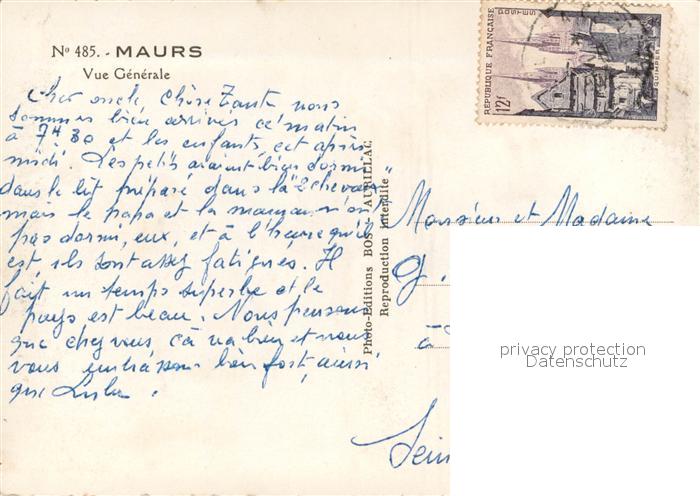 Nº 485. - MAURS
Vue Générale
Cher oncle, Chère Tante nous
sommes bien arrivés ce matin
à 7H30 et les enfants, cet après
midi. Les petits avaient bien dormi
dans le lit préparé dans la "2 chevaux"
mais le papa et la maman n'ont
pas dormi, eux, et à l'heure qu'il
est, ils sont assez fatigués. Il
fait un temps superbe et le
pays est beau. Nous pensons
que chez vous ça va bien et nous
vous embrassons bien fort, ainsi
que
Photo-Editions BOS - AURILLAC
Reproduction interdite
RÉPUBLIQUE FRANÇAISE
POSTES
12f
QUIMPER
Monsieur et Madame
G.
à
Sein
privacy protection
Datenschutz